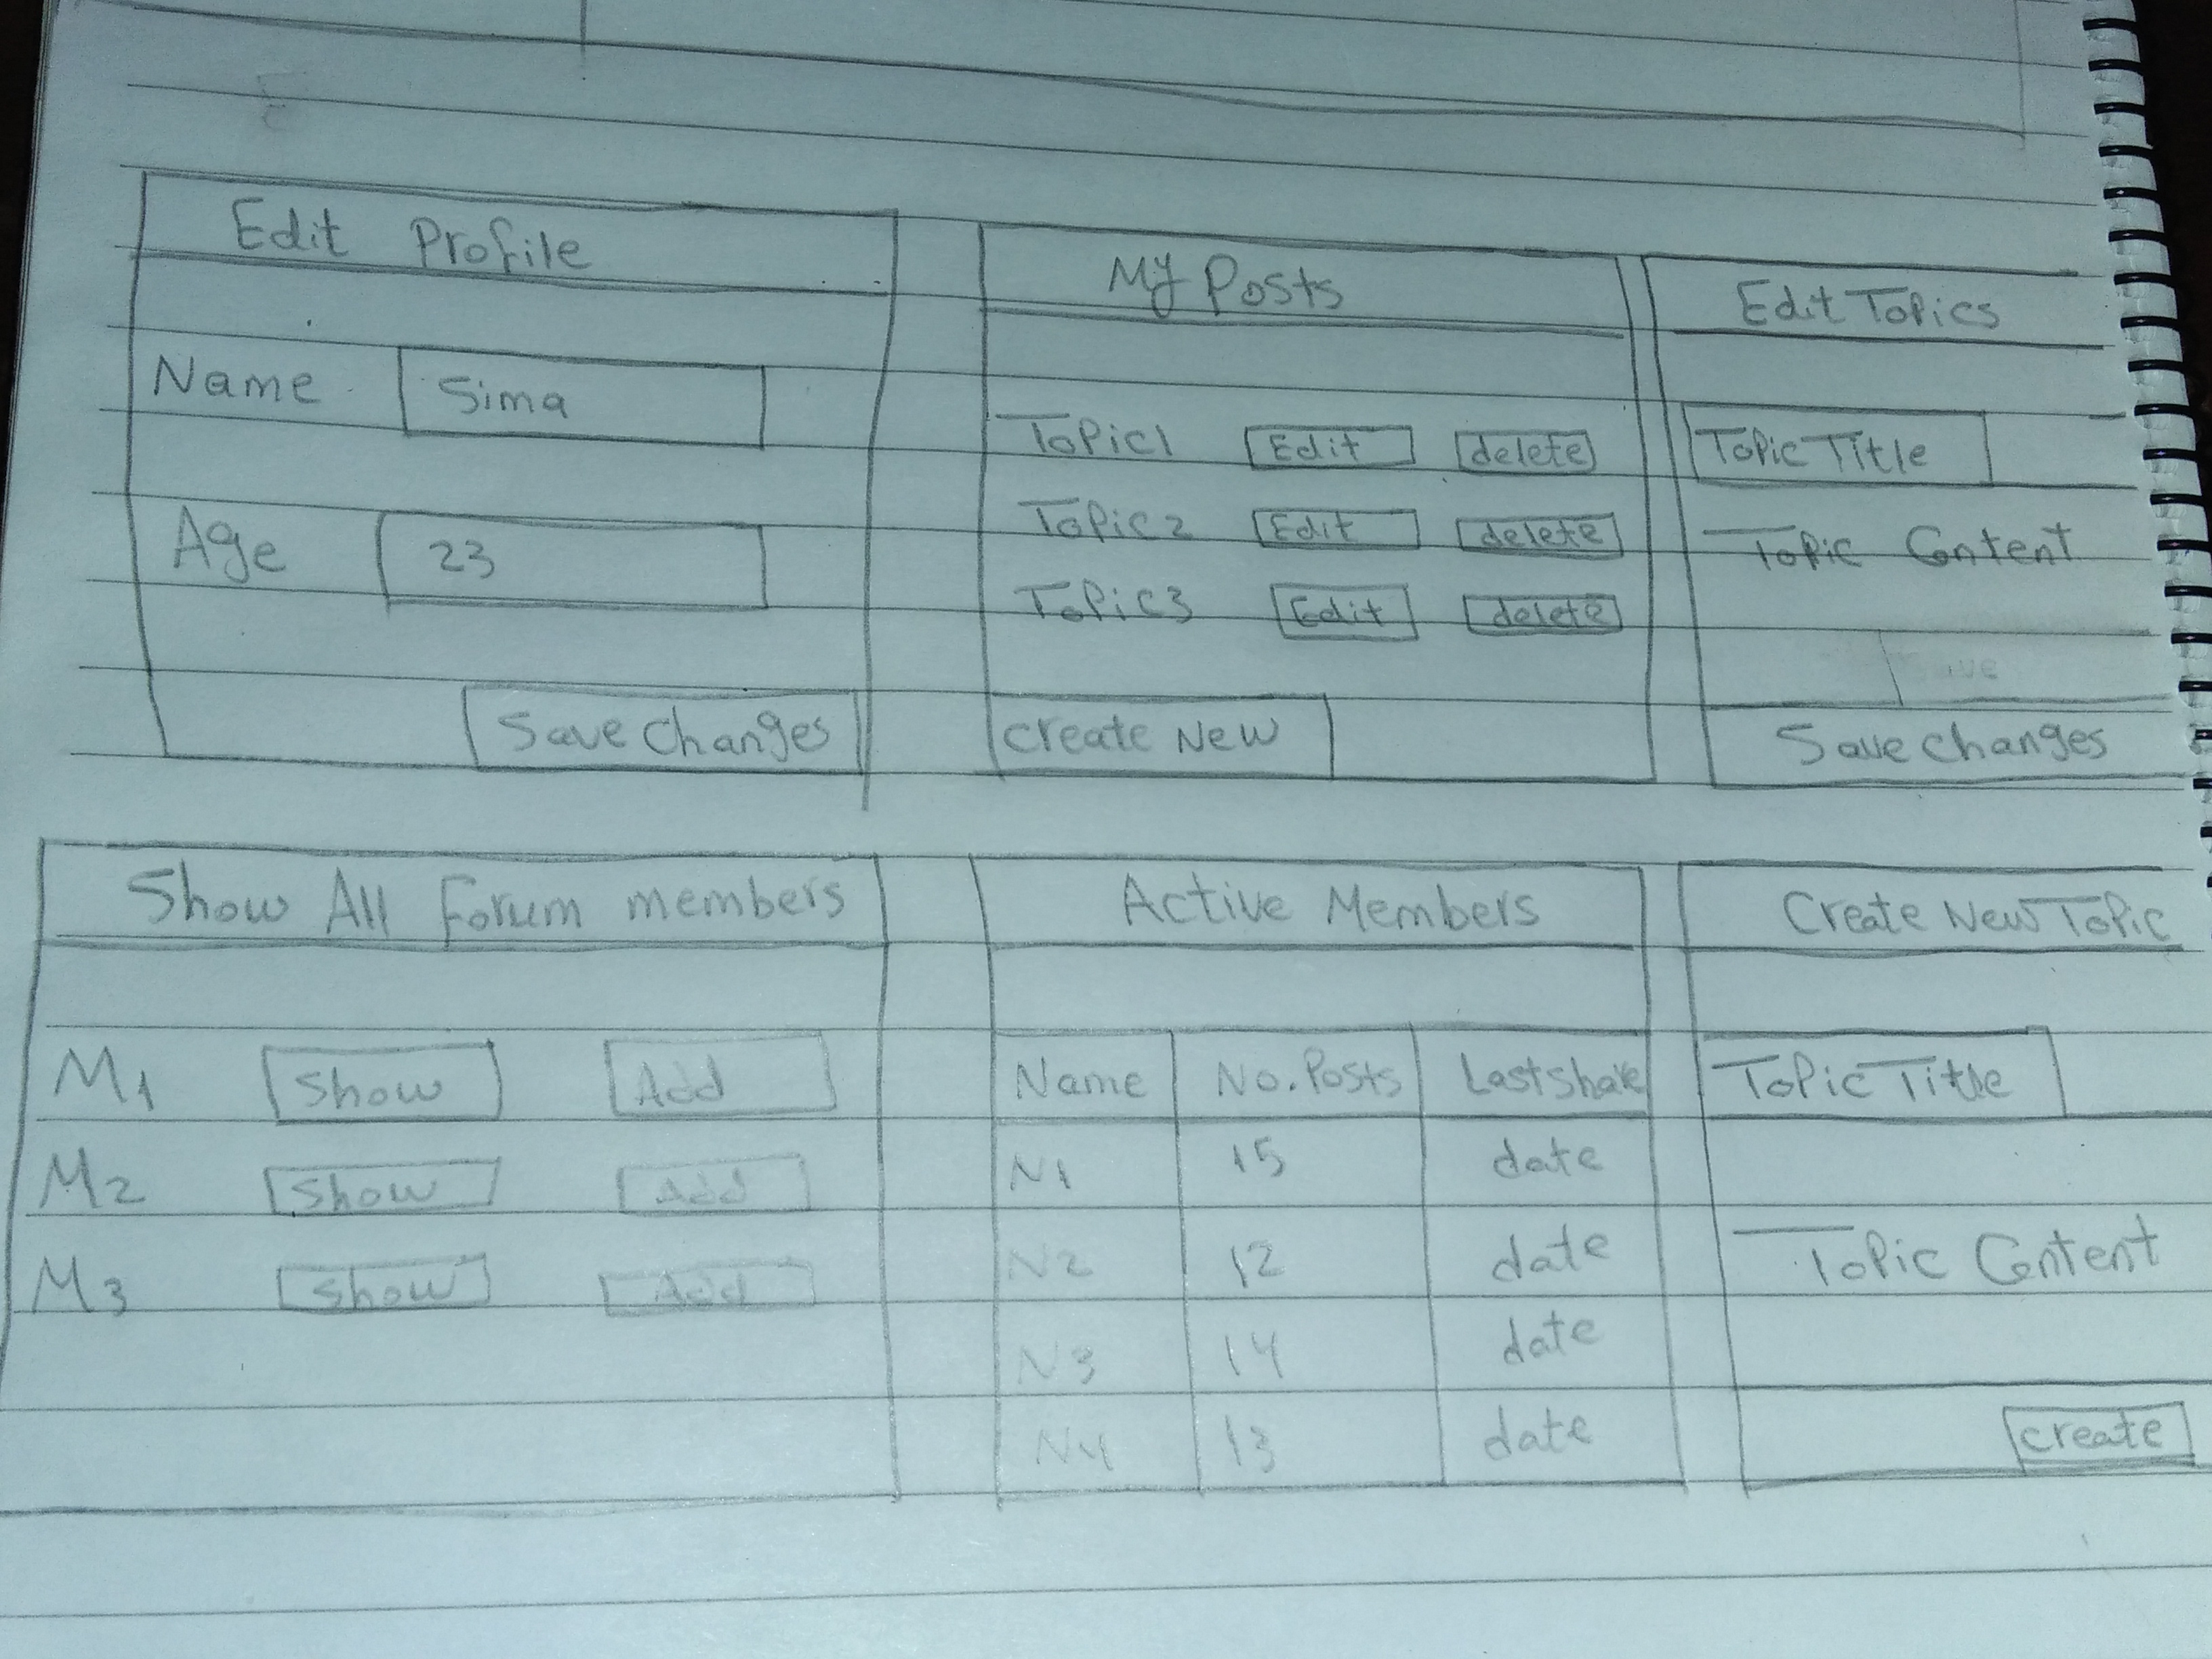 Edit Profile
Name Sima
Age 23
Save Changes
My Posts
Topic1 Edit delete
Topic2 Edit delete
Topic3 Edit delete
Create New
Edit Topics
Topic Title
Topic Content
Save changes
Show All Forum members
M1 Show Add
M2 Show Add
M3 Show Add
Active Members
Name No. Posts Last share
N1 15 date
N2 12 date
N3 14 date
N4 13 date
Create New Topic
Topic Title
Topic Content
create